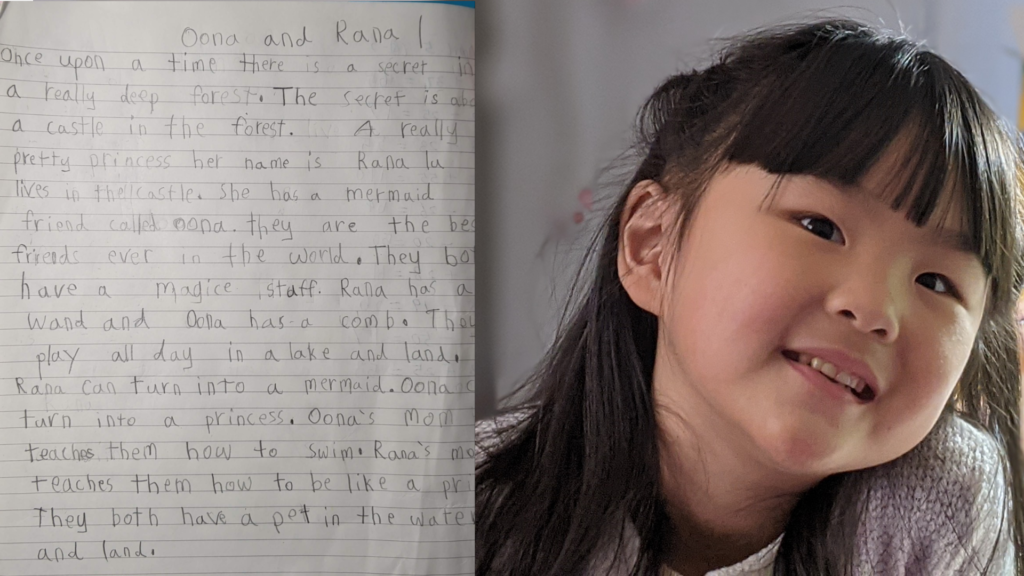 Oona and Rana 1
Once upon a time there is a secret in
a really deep forest. The secret is
a castle in the forest. A really
pretty princess her name is Rana la
lives in the castle. She has a mermaid
friend called oona. they are the
friends ever in the world. They
have a magice staff. Rana has a
wand and Oona has a comb. They
play all day in a lake and land.
Rana can turn into a mermaid. Oona
turn into a princess. Oona's Mom
teaches them how to swim. Rana's
teaches them how to be like a
They both have a pet in the water
and land.